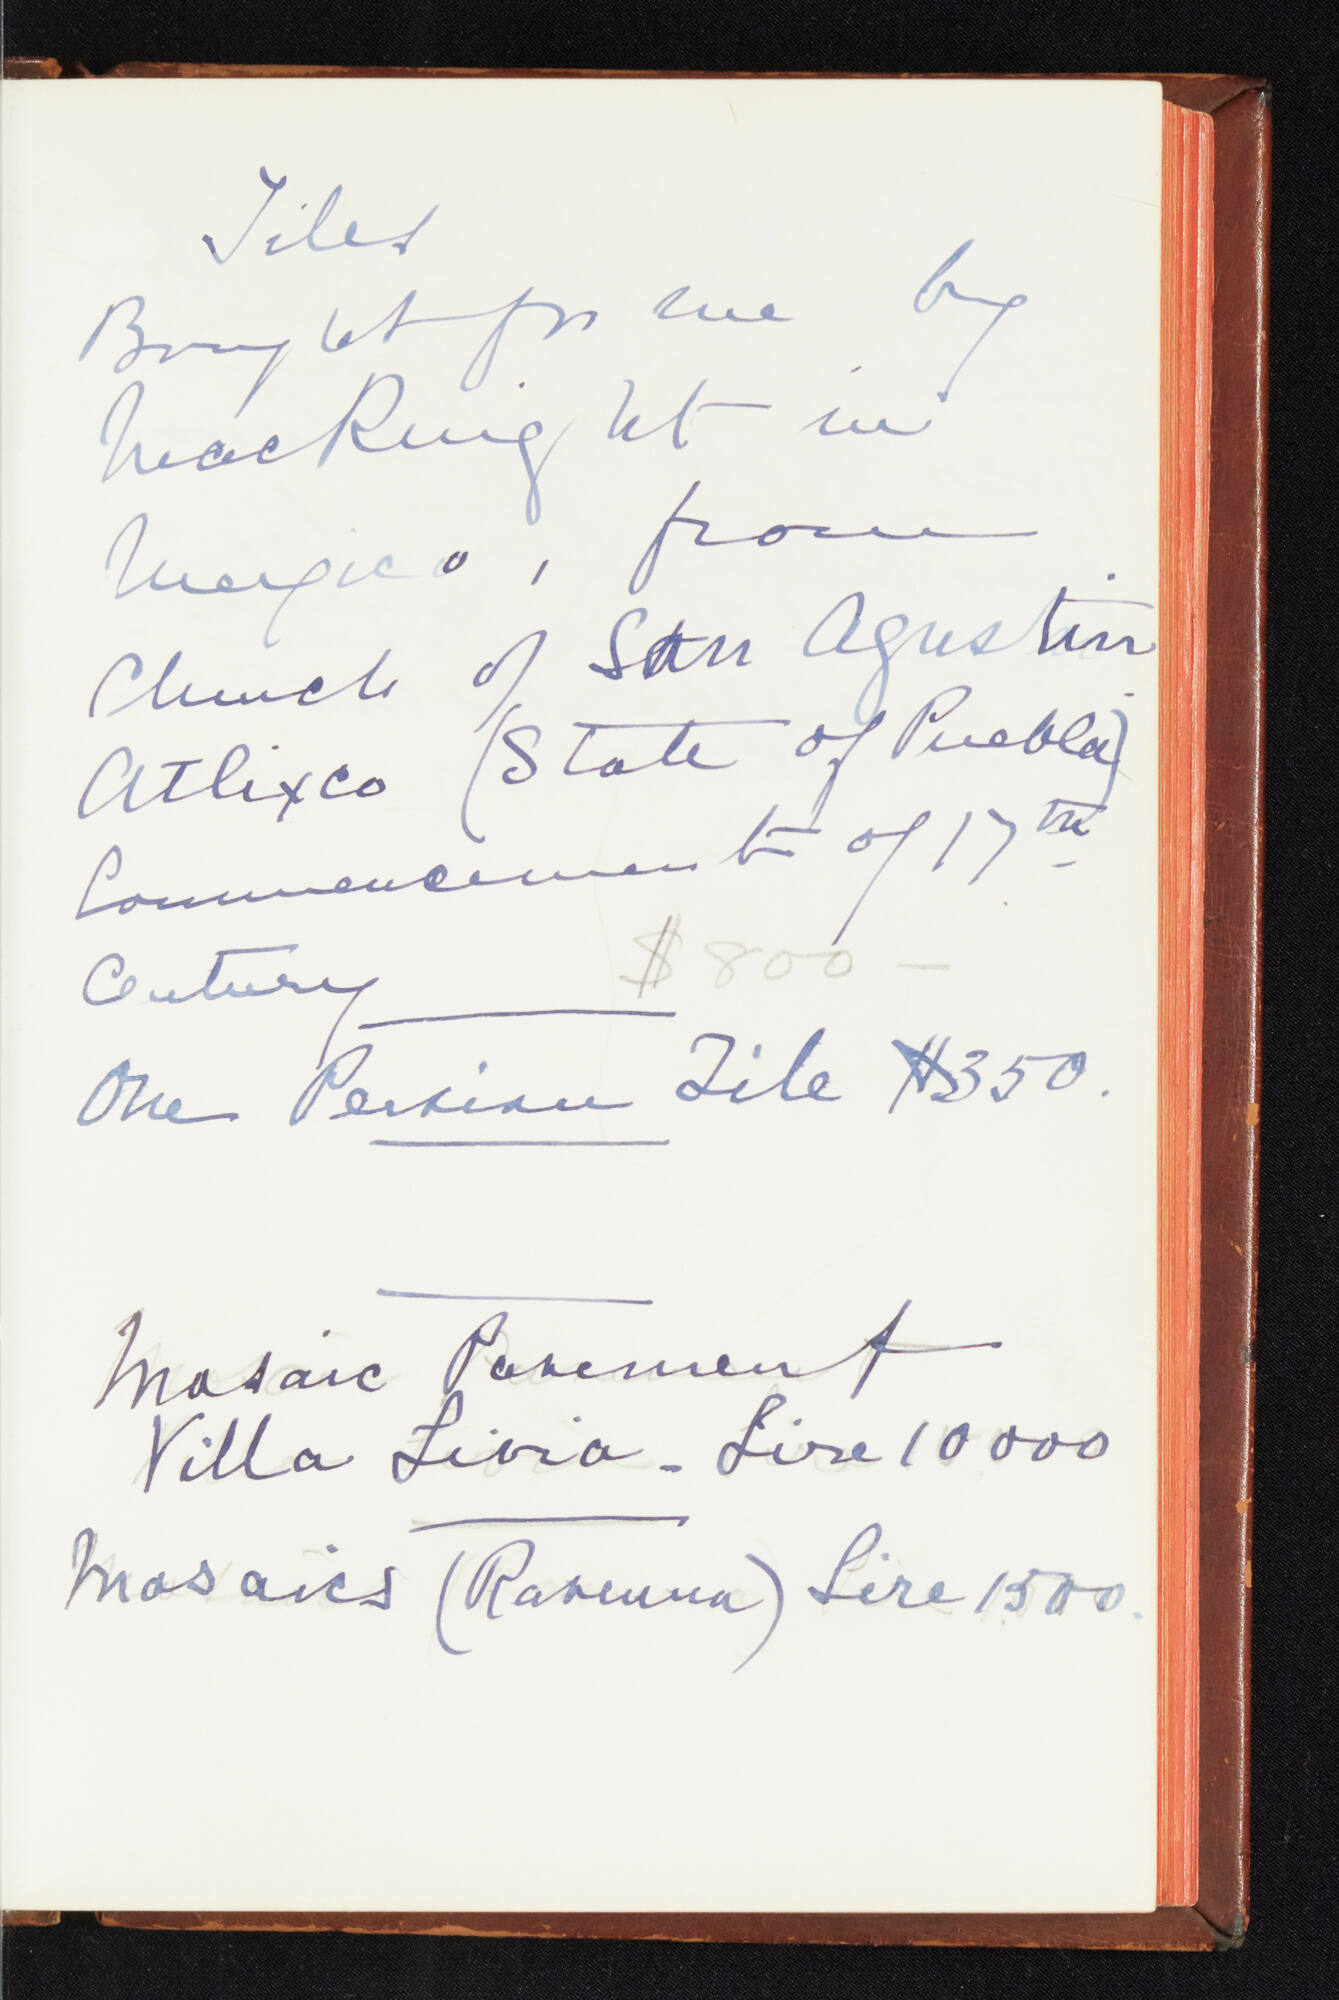 Tiles
Bought for me by
MacKnight in
Mexico, from
Church of San Agustin
Atlixco (State of Puebla)
Commencement of 17th
Century $800 —
One Persian Tile $350.
Mosaic Pavement
Villa Livia - Lire 10000
Mosaics (Ravenna) Lire 1500.